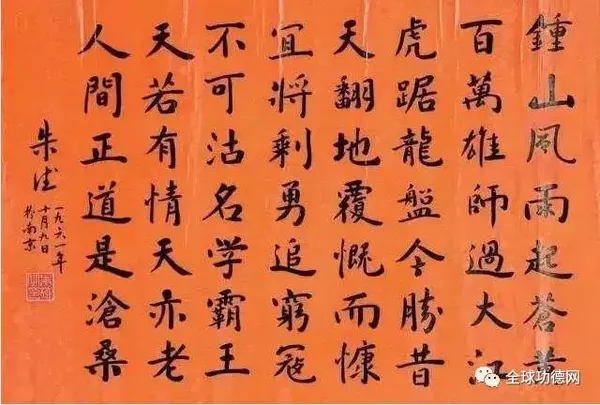 鍾山風雨起蒼黃
百萬雄師過大江
虎踞龍盤今勝昔
天翻地覆慨而慷
宜將剩勇追窮寇
不可沽名学霸王
天若有情天亦老
人間正道是滄桑
朱德
一九六一年
十月九日
於南京
全球功德网